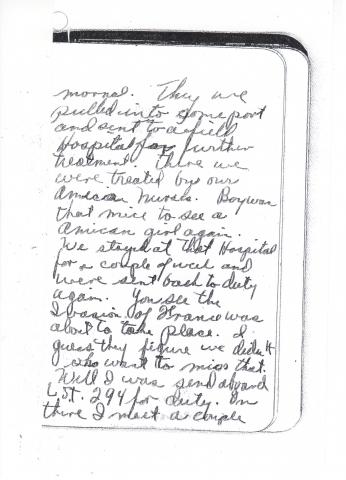 mornal. They we
pulled into some port
and sent to a field
Hospital for further
treatment. There we
were treated by our
American Nurses. Boy was
that mice to see a
Amican girl again.
We stayed at that Hospital
for a couple of week and
were sent back to duty
again. You see the
Invasion of France was
about to take place. I
guess they figure we didn't
want to miss that.
Well I was send aboard
L.St. 294 for duty. On
there I meet a couple